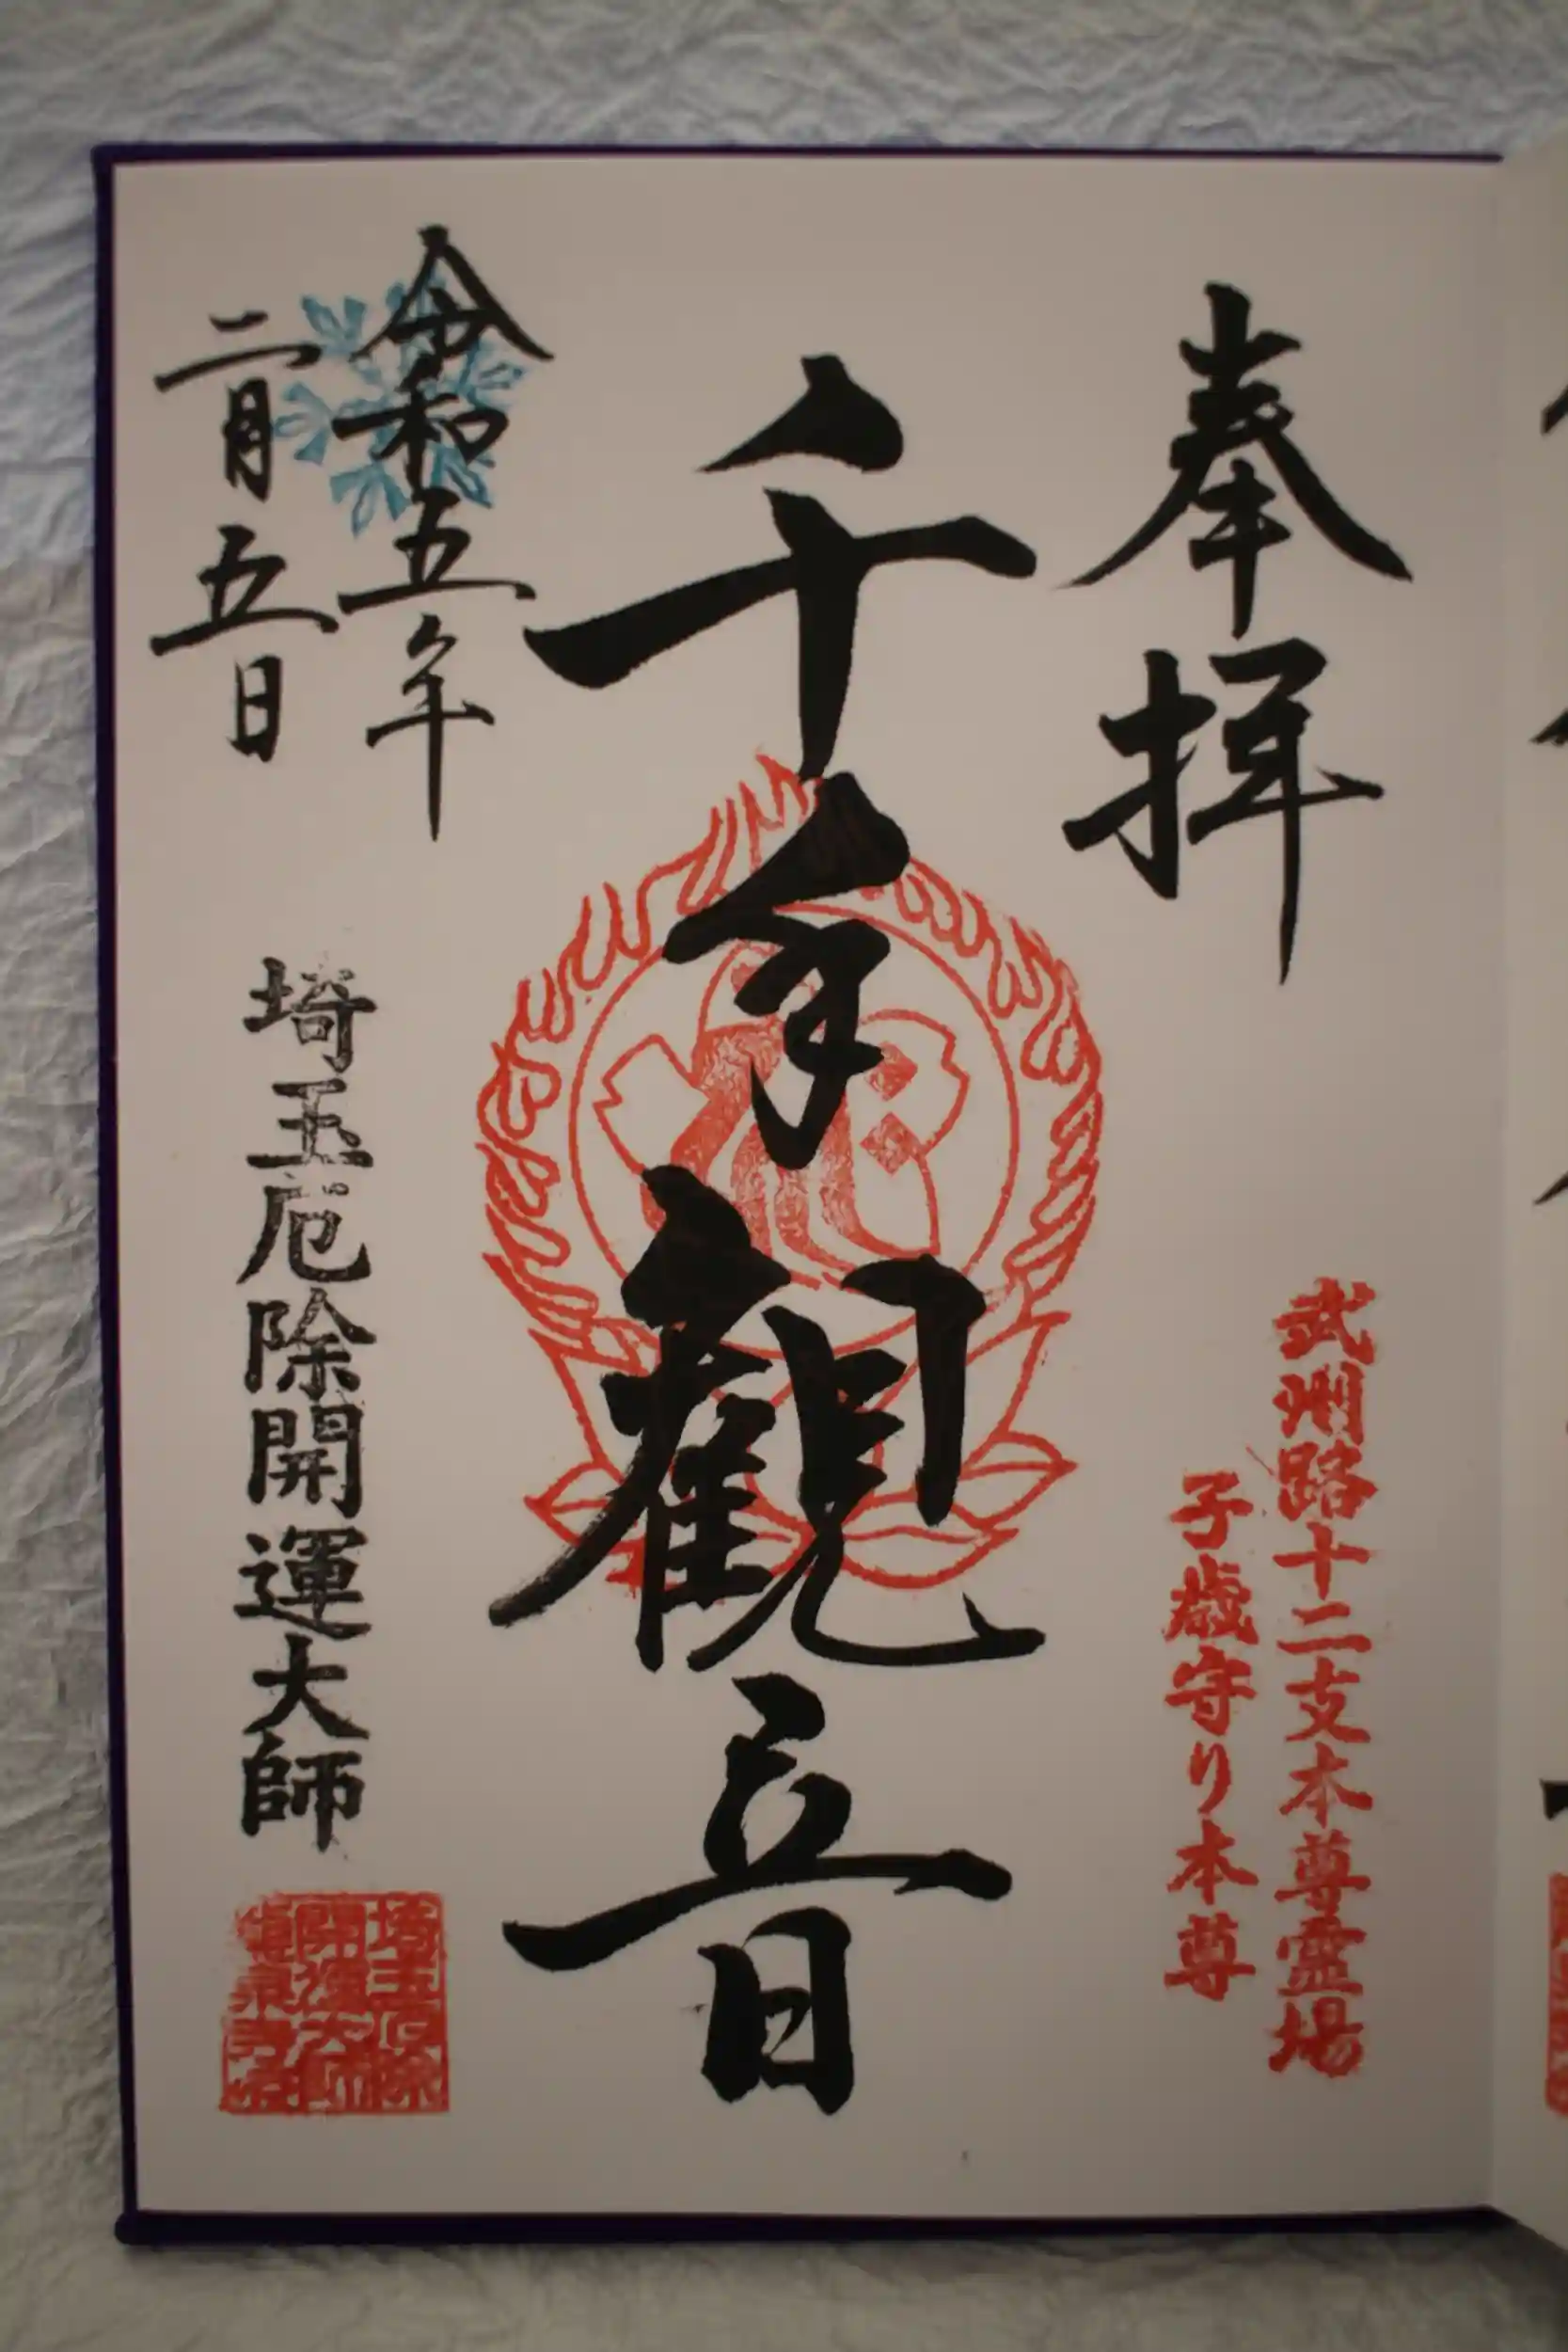 奉拝
武州路十二支本尊霊場
子歳守り本尊
千手観音
令和五年
二月五日
埼玉厄除開運大師
埼玉厄除
開運大師